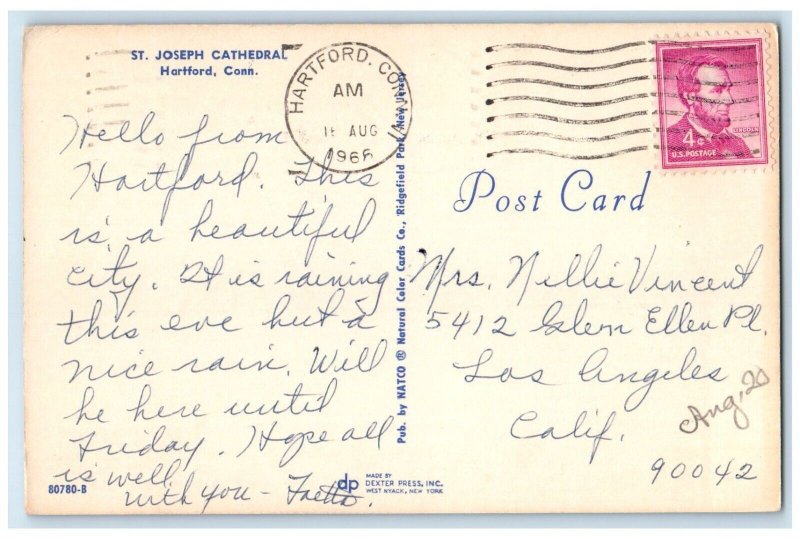 ST. JOSEPH CATHEDRAL
Hartford, Conn.
HARTFORD, CONN
AM
AUG
LINCOLN
4¢
U.S. POSTAGE
Hello from
Hartford. This
is a beautiful
city. It is raining
this eve but a
nice rain. Will
be here until
Friday. Hope all
is well
with you -
80780-B
Pub. by NATCO ® Natural Color Cards Co., Ridgefield Park, New Jersey
Post Card
Mrs. Nellie Vincent
5412 Glenn Ellen Pl.
Los Angeles
Calif.
90042
Aug, 20
dp
MADE BY
DEXTER PRESS, INC.
WEST NYACK, NEW YORK